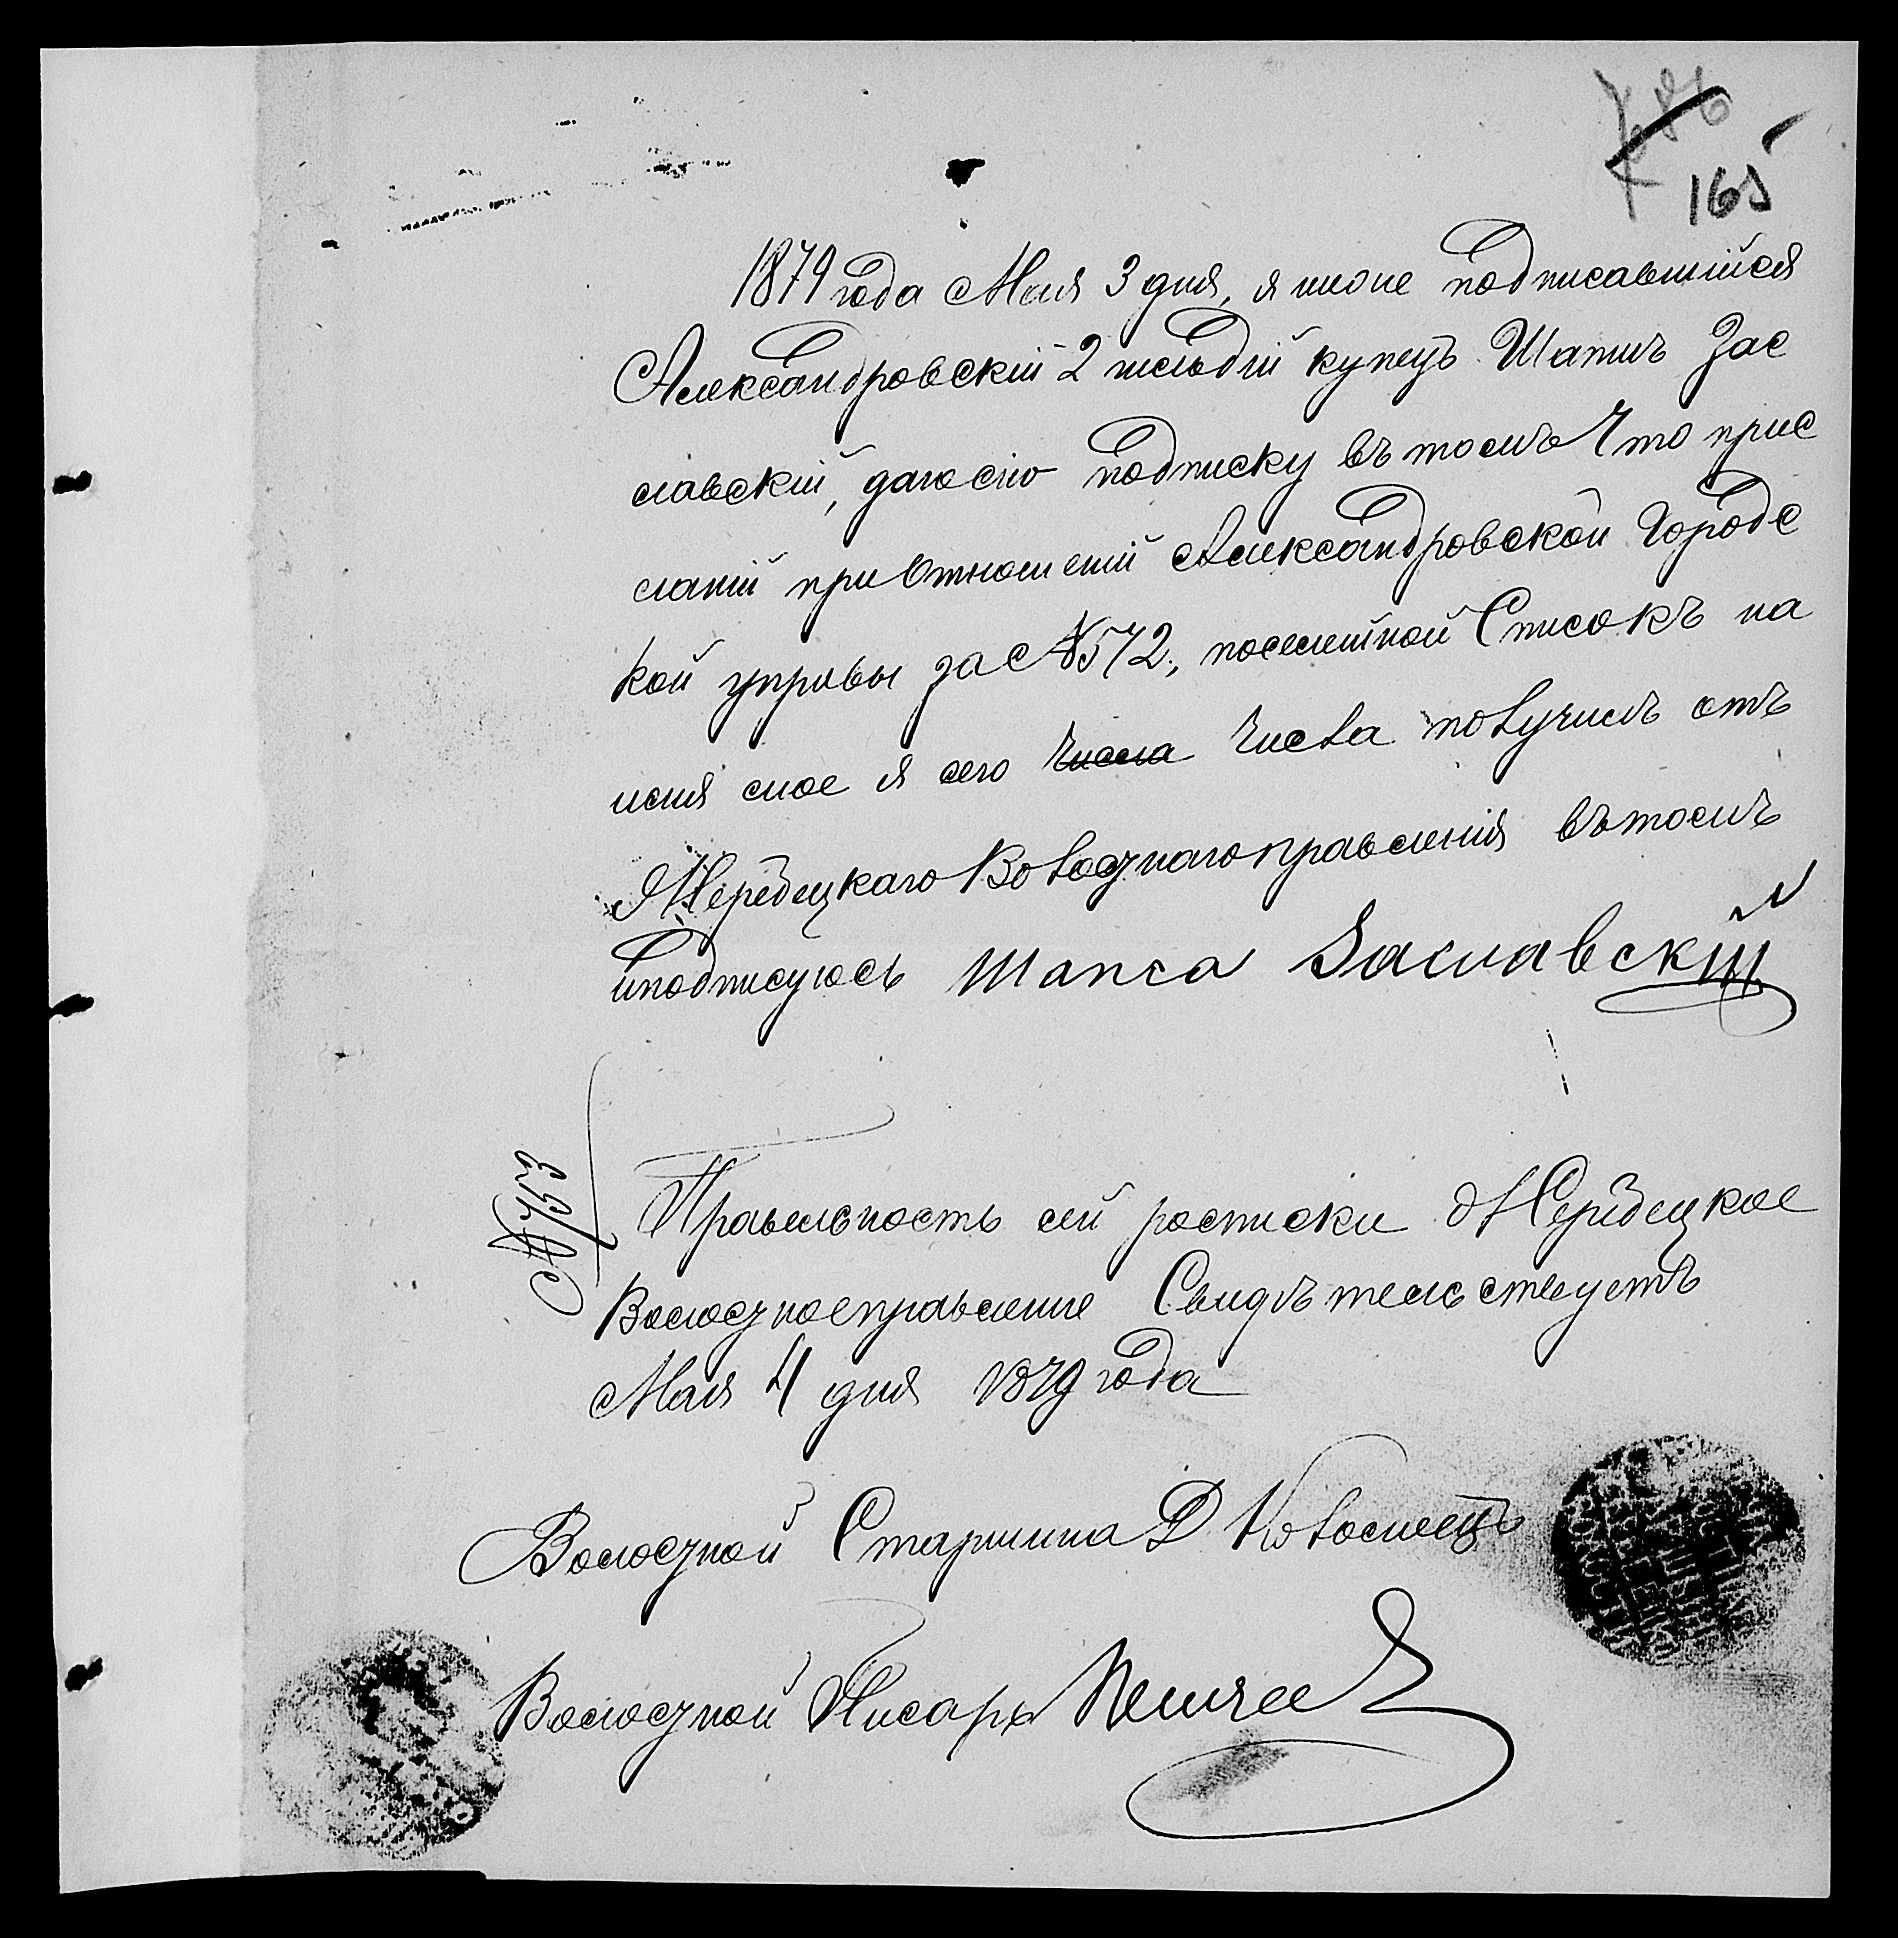 165
1879 года Мая 3 дня, я ниже подписавшийся
Александровскій 2 гильдіи купецъ Шапшъ Зас
лавскій, даю сію подписку въ томъ что прис
ланій при отношеніи Александровской Городс
кой управы за №572, посемейной Списокъ на
имя мое я сего числа числа получилъ отъ
Жеребецкаго Волостнаго правленія въ томъ
иподписуюсь Шапса Заславскій
Правельность сей росписки Жеребецкое
Волостное правленіе Свидѣтельствуетъ
Мая 4 дня 1879 года
№753
Волостной Старшина Д
Волостной Писарь